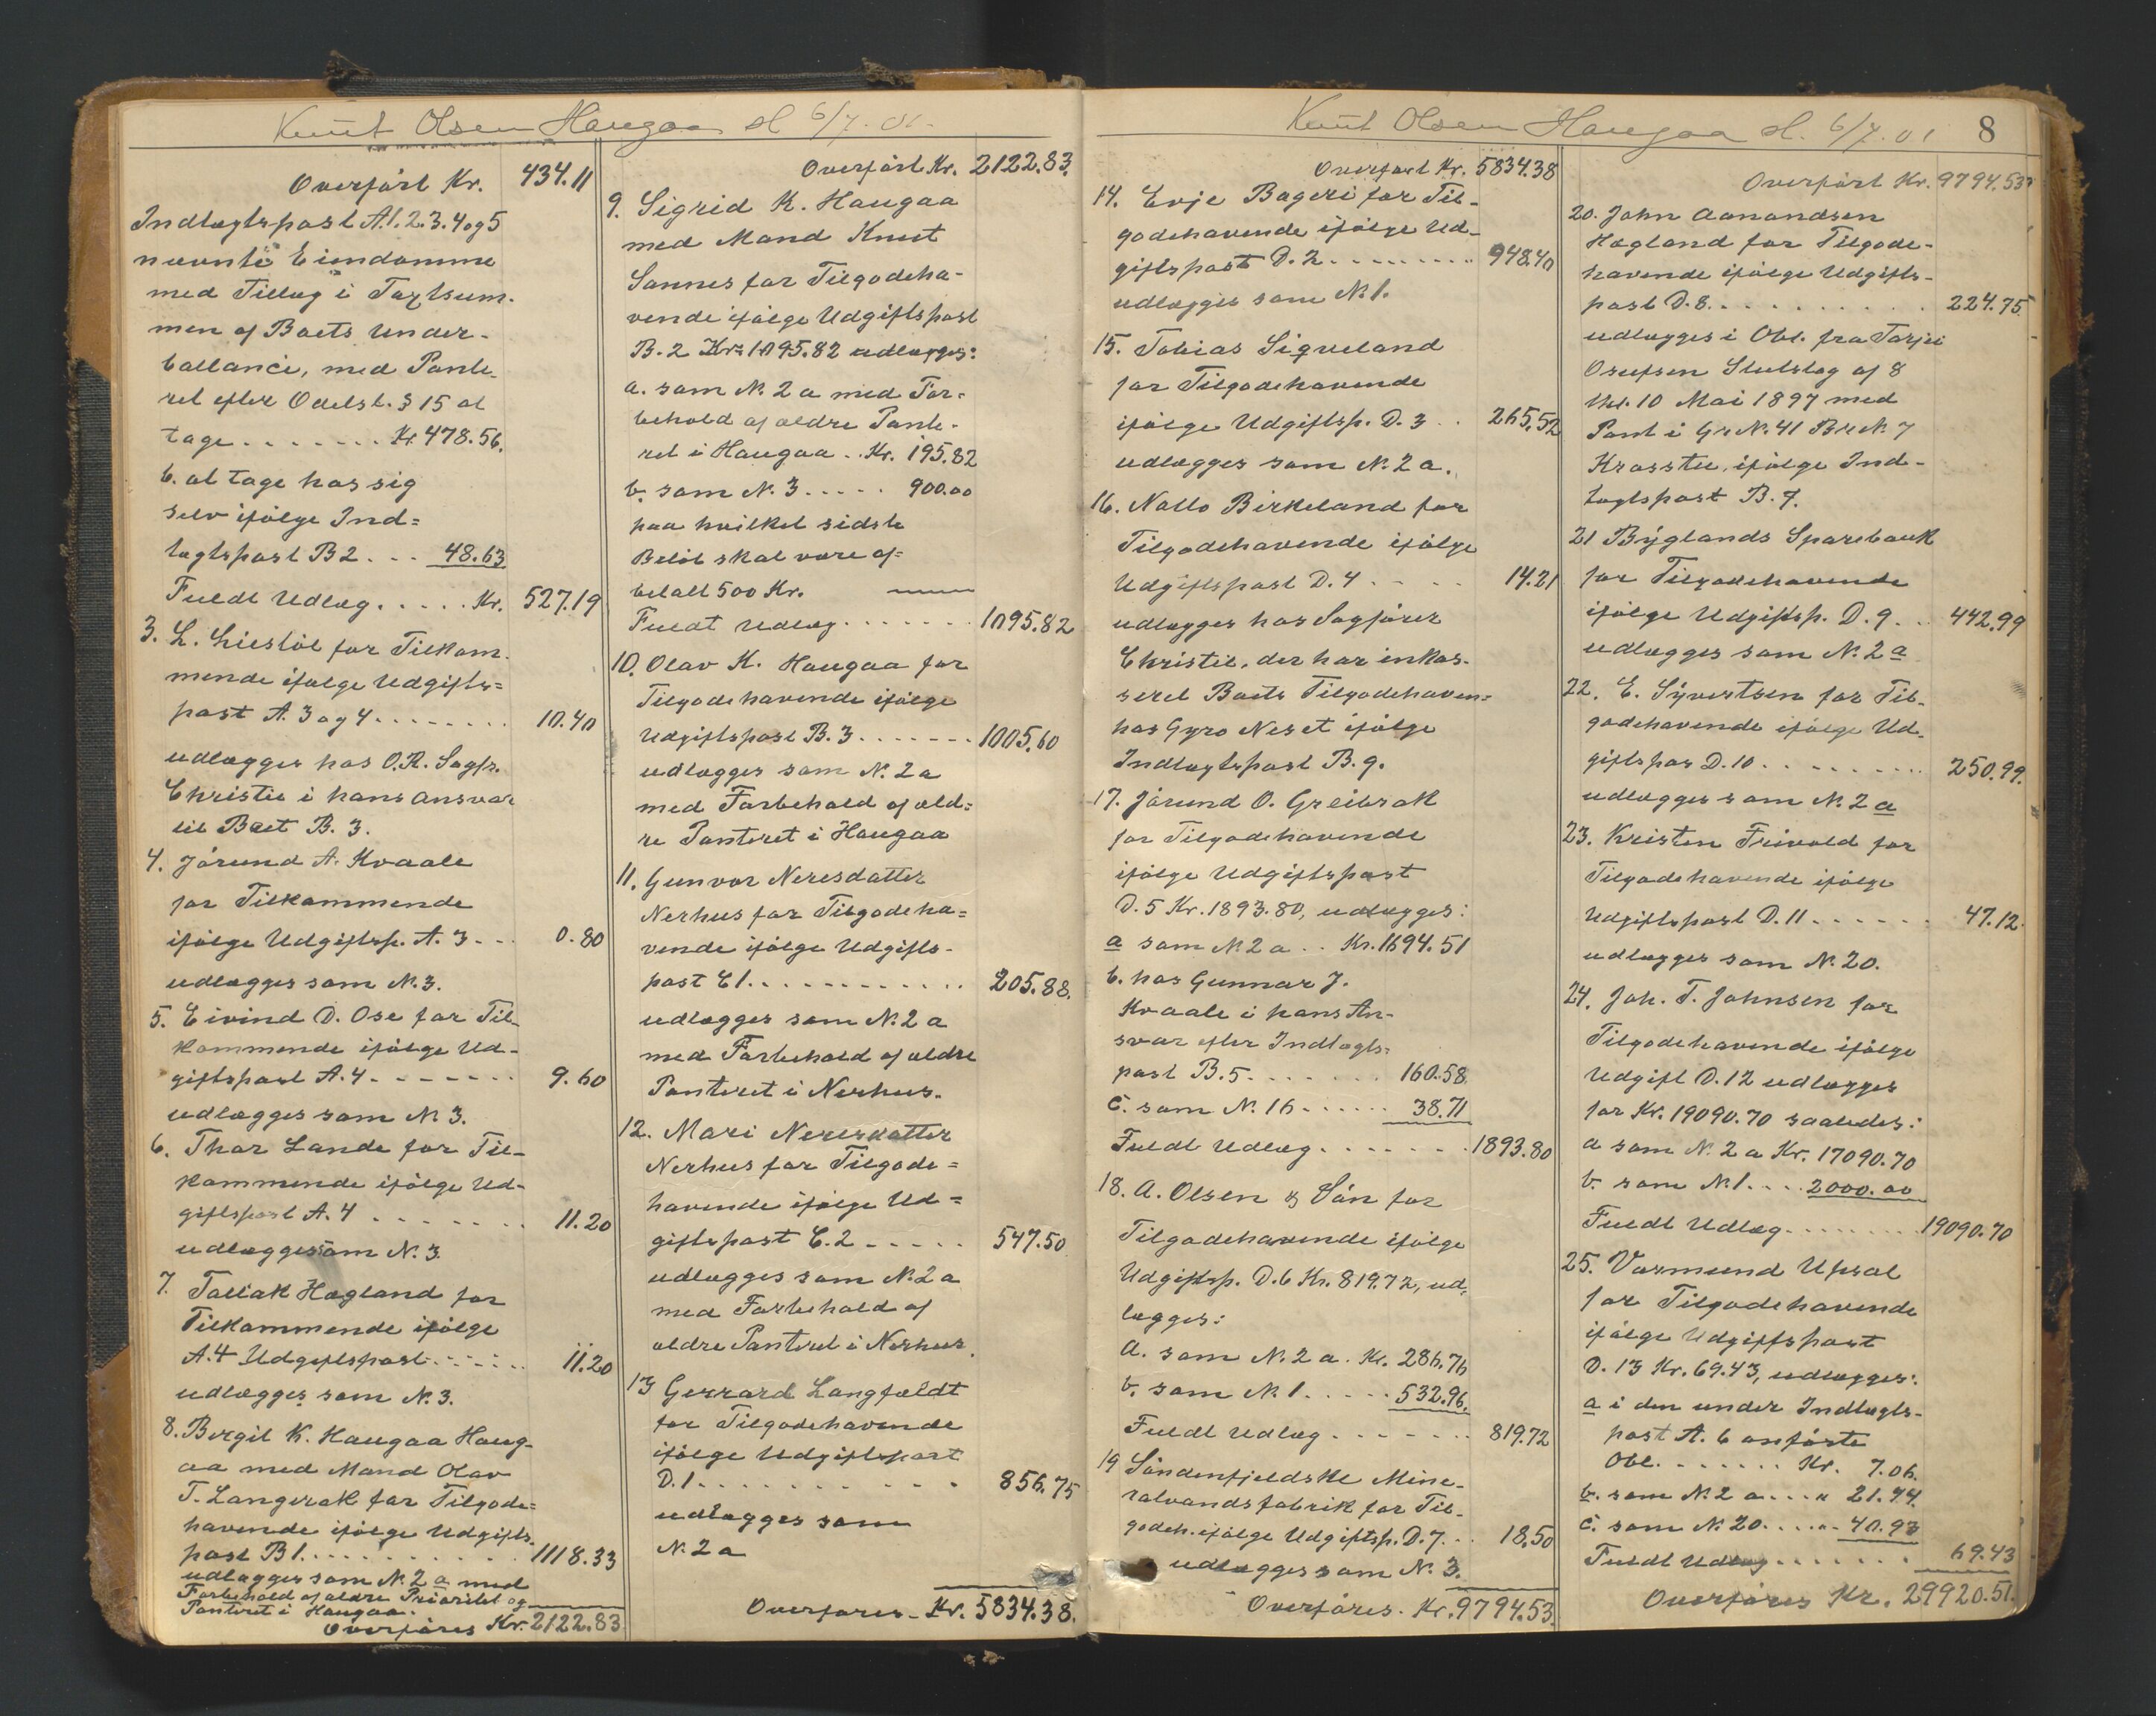 Knut Olsen Haugaa 6/7.01.
Overført Kr. 434.11
Indtægtspost A.1.2.3.4 og 5
nævnte Eiendomme
med Tillæg i Taxtsum-
men af Boets Under-
ballance, med Pante-
ret efter Odelsl. § 15 at
tage . . . . . . . Kr 478.56.
b. at tage hos sig
selv ifølge Ind=
tægtspost B 2 . . . 48.63
Fuldt Udlæg . . . . . Kr. 527.19
3. L. Liestøl for Tilkom-
mende ifølge Udgifts=
post A. 3 og 4 . . . . . . . . 10.40
udlægges hos O.R. Sagf.
Christie i hans Ansvar
til Boet B. 3.
4. Jórund A. Kvaale
for Tilkommende
ifølge Udgiftsp. A. 3 - . . 0.80
udlægges som N. 3.
5. Eivind D. Ose for Til-
kommende ifølge Ud-
giftspost A. 4 - - - - - - 9.60
udlægges som N. 3.
6. Thor Lande for Til-
kommende ifølge Ud-
giftspost A. 4 . . . . . . . 11.20
udlægges som N. 3
7. Tallak Hægland for
Tilkommende ifølge
A. 4 Udgiftspost . . . . . . 11.20
udlægges som N. 3.
8. Bergit K. Haugaa Haug-
aa med Mand Olav
T. Langerak for Tilgode=
havende ifølge Udgifts-
post B 1. . . . . . . . . . . 1118.33
udlægges som N. 2 a med
Forbehold af ældre Prioritet og
Panteret i Haugaa.
Overføres Kr. 2122.83
Overført Kr. 2122.83.
9. Sigrid K. Haugaa
med Mand Knut
Sannes for Tilgodeha-
vende ifølge Udgiftspost
B. 2 Kr. 1095.82 udlægges:
a. som N. 2 a med For-
behold af ældre Pante-
ret i Haugaa . . Kr. 195.82
b. som N. 3 . . . . . 900.00
paa hvilket sidste
Beløb skal være af=
betalt 500 Kr.
Fuldt Udlæg . . . . . . . 1095.82
10. Olav K. Haugaa for
Tilgodehavende ifølge
Udgiftspost B. 3 . . . . . . . 1005.60
udlægges som N. 2 a
med Forbehold af æld=
re Panteret i Haugaa
11. Gunvor Neresdatter
Nerhus for Tilgodeha=
vende ifølge Udgifts-
post C 1. . . . . . . . . . . . 205.88.
udlægges som N. 2 a
med Forbehold af ældre
Panteret i Nerhus.
12. Mari Neresdatter
Nerhus for Tilgode=
havende ifølge Ud=
giftspost C. 2 . . . . . 547.50
udlægges som N. 2 a
med Forbehold af
ældre Panteret i Nerhus.
13 Gerrard Langfeldt
for Tilgodehavende
ifølge Udgiftspost
D. 1 . . . . . . . . . . 856.75
udlægges som
N. 2 a
Overføres - Kr. 5834.38.
Knut Olsen Haugaa 6/7.01 8
Overført Kr. 5834.38
14. Evje Bageri for Til-
godehavende ifølge Ud-
giftspost D. 2 . . . . . . . . . 948.40
udlægges som N. 1.
15. Tobias Sigveland
for Tilgodehavende
ifølge Udgiftsp. D. 3 . . 265.52
udlægges som N. 2 a.
16. Nollo Birkeland for
Tilgodehavende ifølge
Udgiftspost D. 4 - - - - 14.21
udlægges hos Sagfører
Christie, der har inkas-
seret Boets Tilgodehaven=
hos Gyro Neset ifølge
Indtægtspost B. 9.
17. Jórund O. Greibrok
for Tilgodehavende
ifølge Udgiftspost
D. 5 Kr. 1893.80, udlægges:
a som N. 2 a . . Kr. 1694.51
b. hos Gunnar J.
Kvaale i hans An-
svar efter Indtægts-
post B. 5 . . . . . . . 160.58
c. som N. 16 . . . . . . 38.71
Fuldt Udlæg . . . . . . . 1893.80
18. A. Olsen & Søn for
Tilgodehavende ifølge
Udgiftsp. D. 6 Kr. 819.72, ud-
lægges:
a. som N. 2 a . Kr. 286.76
b. som N. 1 . . . . . 532.96.
Fuldt Udlæg . . . . . . . 819.72
19 Søndenfjeldske Mine-
ralvandsfabrik for Til-
godeh. ifølge Udgiftsp. D. 7. . . 18.50
udlægges som N. 3.
Overføres. Kr. 9794.53.
Overført Kr. 9794.53
20. John Aanondsen
Hægland for Tilgode-
havende ifølge Udgifts-
post D. 8. . . . . . . . . . . 224.75
udlægges i Obl. fra Torjei
Osufsen Stutslog af 8
thl. 10 Mai 1897 med
Pant i Gr N. 41 Br N. 7
Krosstu, ifølge Ind-
tægtspost B. 7.
21 Byglands Sparebank
for Tilgodehavende
ifølge Udgiftsp. D. 9 . . 442.99
udlægges som N. 2 a
22. E. Syvertsen for Til-
godehavende ifølge Ud-
giftspos D. 10 . . . . . . . . . 250.99.
udlægges som N. 2 a
23. Kristen Frivold for
Tilgodehavende ifølge
Udgiftspost D. 11 . . . . . . 47.12.
udlægges som N. 20.
24. Joh. T. Johnsen for
Tilgodehavende ifølge
Udgift D. 12 udlægges
for Kr. 19090.70 saaledes:
a som N. 2 a Kr. 17090.70
b. som N. 1 . . . . 2000.00
Fuldt Udlæg . . . . . . . . 19090.70
25. Vormund Upsal
for Tilgodehavende
ifølge Udgiftspost
D. 13 Kr. 69.43, udlægges:
a i den under Indtægts-
post A. 6 anførte
Obl. . . . . . . . Kr. 7.06.
b. som N. 2 a . . . „ 21.44
c. som N. 20 . . . . „ 40.93
Fuldt Udlæg . . . . . . . 69.43
Overføres Kr. 29920.51.